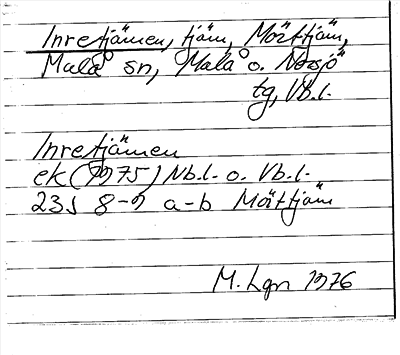 Inretjämen, tjäm, Mörttjäm,
Malå sn, Malå o. Norsjö
tg, Vb.l.
Inretjämen
ek (1975) Nb.l. o. Vb.l.
23J 8-9 a-b Mörttjäm
M. Lgn 1976